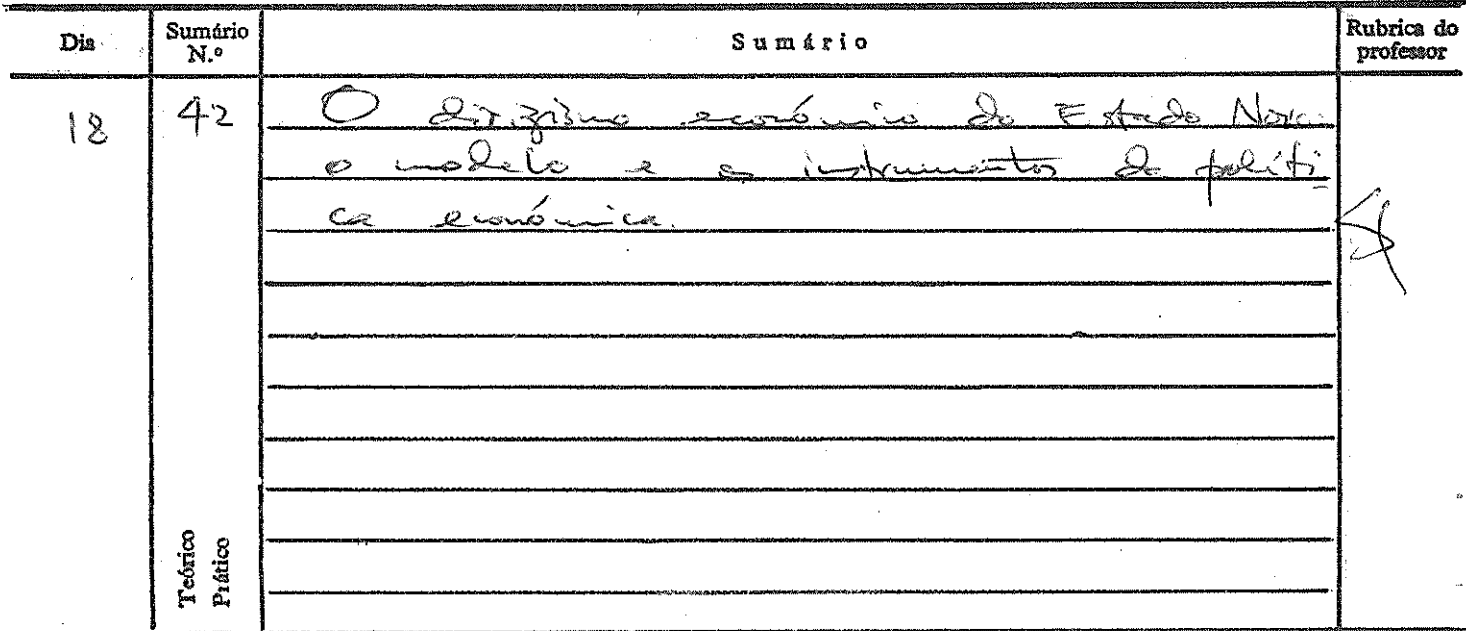 Dia
Sumário N.º
Sumário
Rubrica do professor
18
42
O dirigismo económico do Estado Novo:
o modelo e os instrumentos de políti-
ca económica.
Teórico
Prático